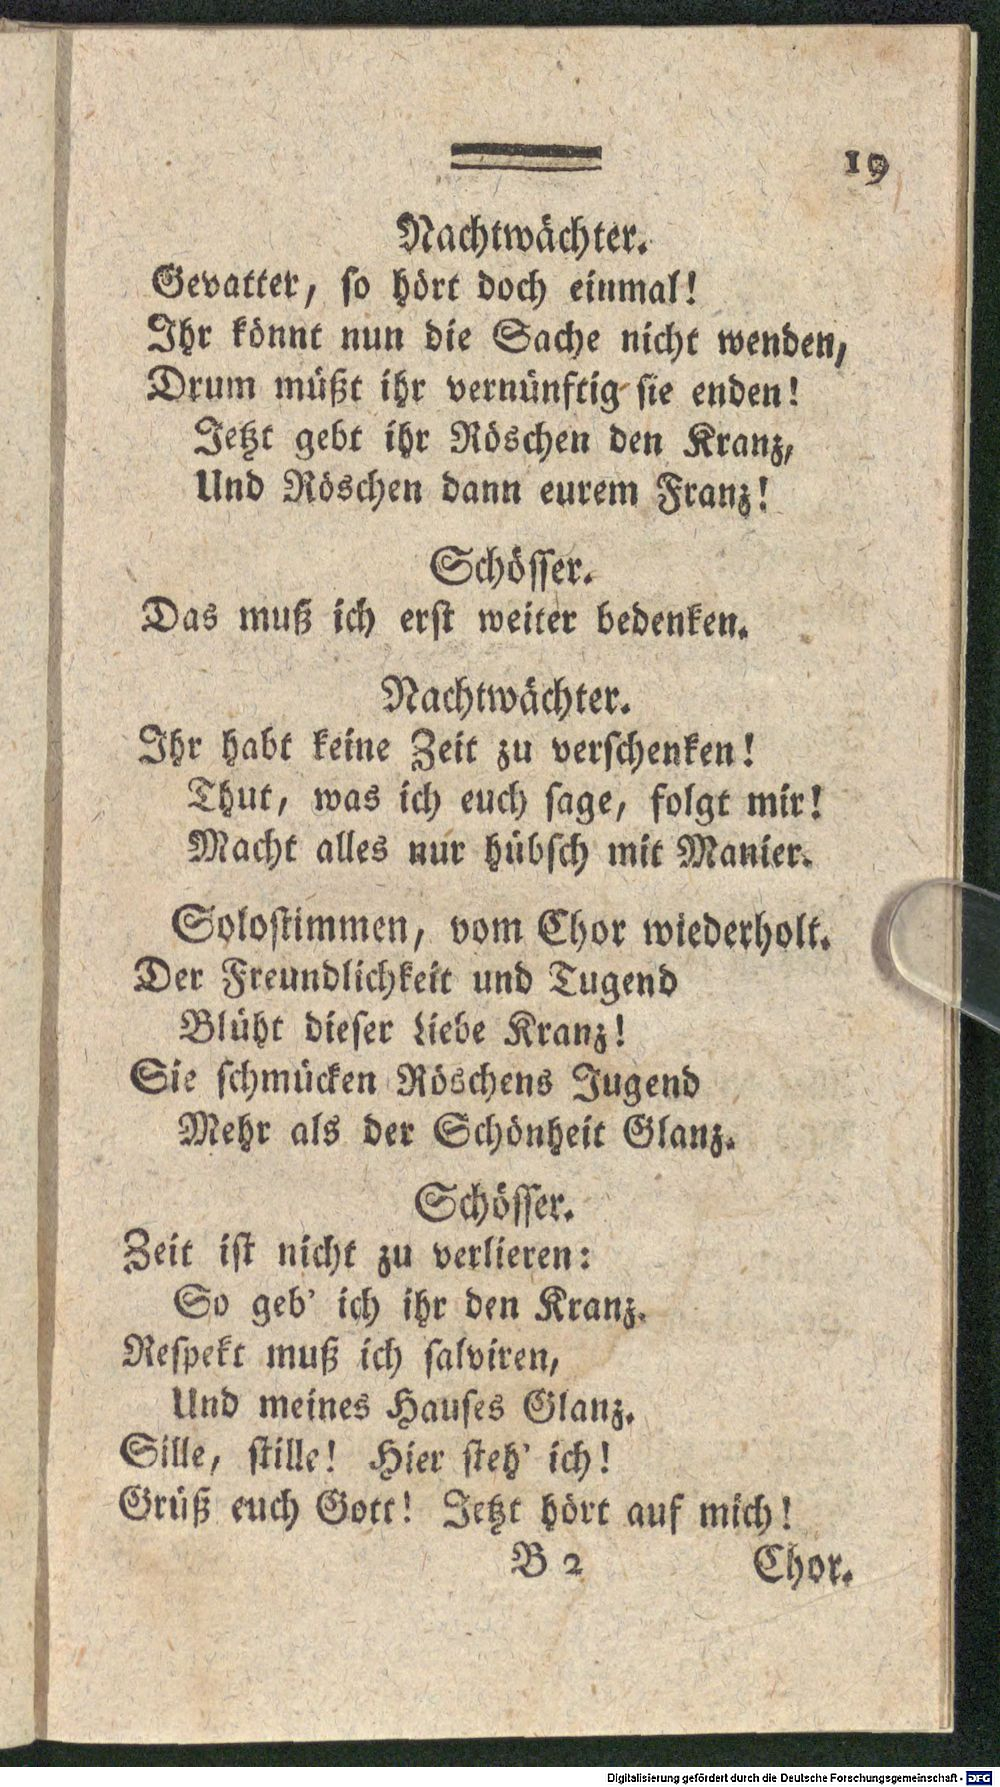 19
Nachtwächter.
Gevatter, so hört doch einmal!
Ihr könnt nun die Sache nicht wenden,
Drum müßt ihr vernünftig sie enden!
Jetzt gebt ihr Röschen den Kranz,
Und Röschen dann eurem Franz!
Schösser.
Das muß ich erst weiter bedenken.
Nachtwächter.
Ihr habt keine Zeit zu verschenken!
Thut, was ich euch sage, folgt mir!
Macht alles nur hübsch mit Manier.
Solostimmen, vom Chor wiederholt.
Der Freundlichkeit und Tugend
Blüht dieser Liebe Kranz!
Sie schmücken Röschens Jugend
Mehr als der Schönheit Glanz.
Schösser.
Zeit ist nicht zu verlieren:
So geb' ich ihr den Kranz.
Respekt muß ich salviren,
Und meines Hauses Glanz.
Sille, stille! Hier steh' ich!
Grüß euch Gott! Jetzt hört auf mich!
B 2 Chor.
Digitalisierung gefördert durch die Deutsche Forschungsgemeinschaft - DFG